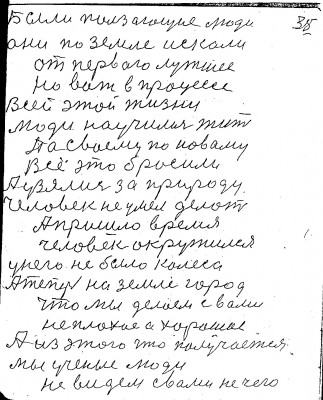 Были ползающие люди
они по земле искали
от первого лутшее
Но вот в процесе
Всей этой жизни
люди научился жит
Па своему по новому
Всё это бросили
А взялис за природу.
Человек не умел делат
А пришло время
человек окружился
у него не было колеса
А тепер на земле город
что мы делаем с вами
не плохое а хорошое
А из этого што получается
мы ученые люди
не видем с вами не чего